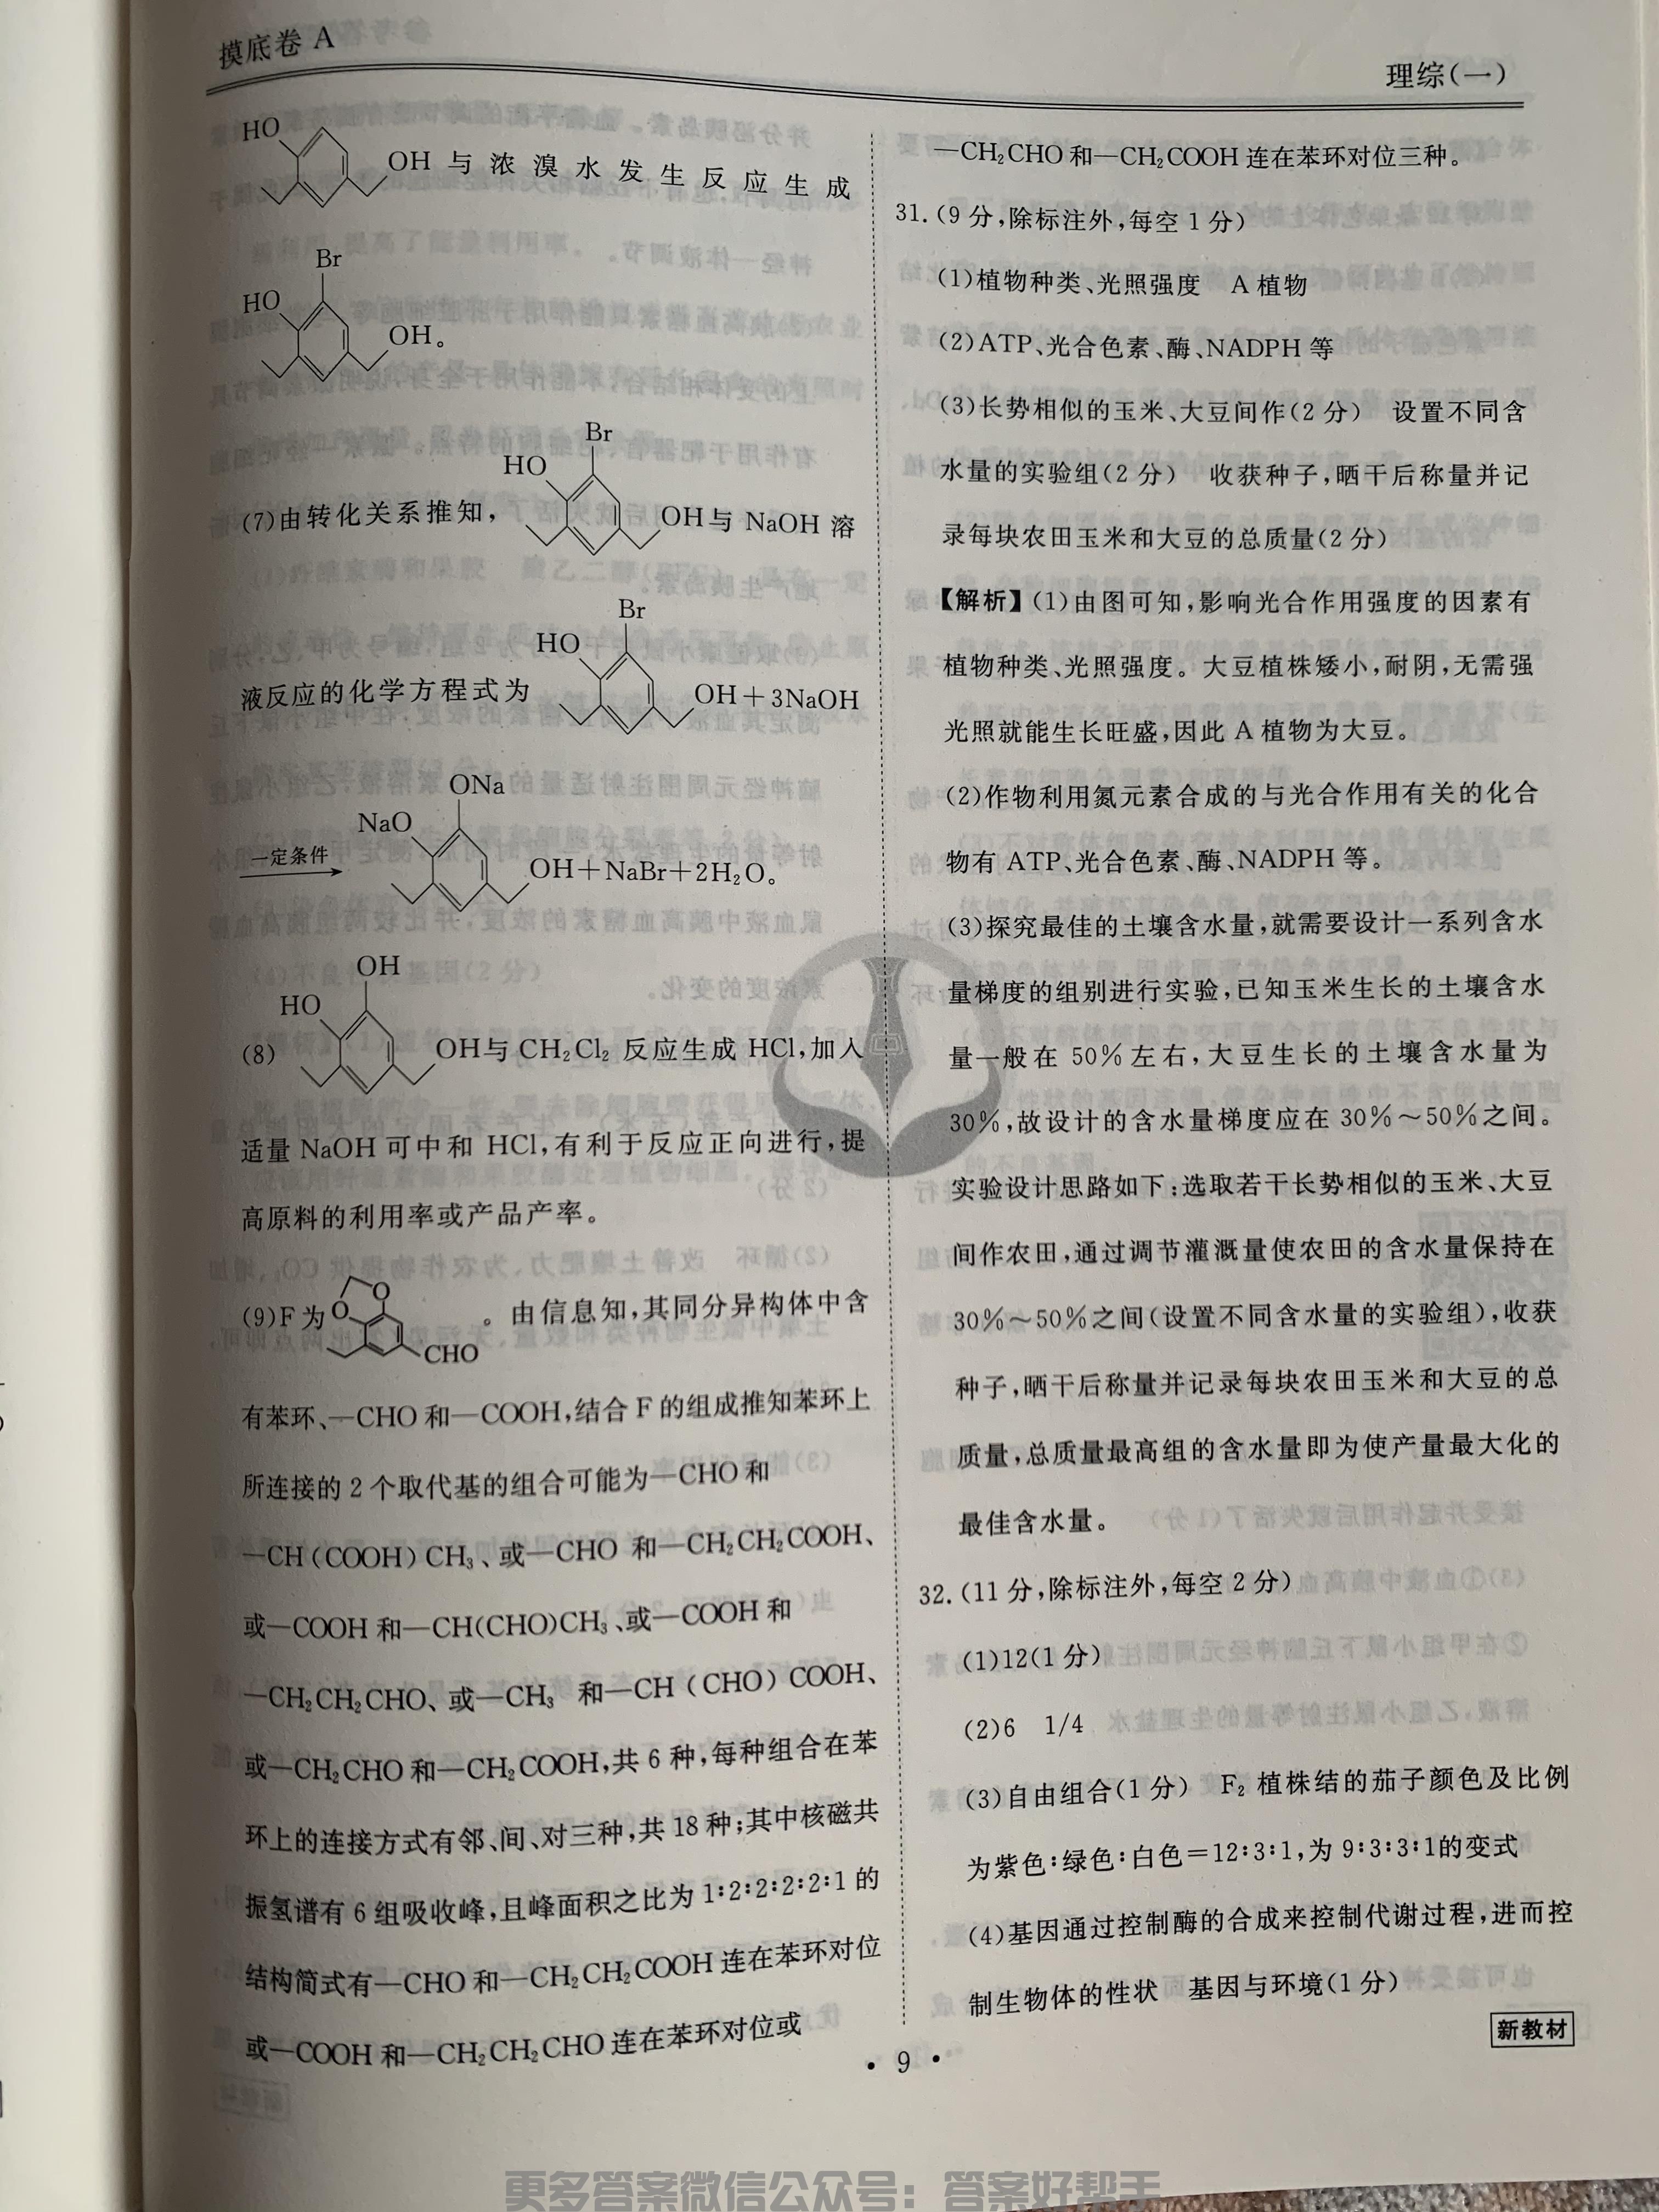 摸底卷 A
理综(一)
HO
OH 与浓溴水发生反应生成
Br
HO
OH。
Br
HO
(7)由转化关系推知,
OH与 NaOH 溶
Br
HO
液反应的化学方程式为
OH+3NaOH
ONa
NaO
一定条件
OH+NaBr+2H₂O。
OH
HO
(8)
OH与 CH₂Cl₂ 反应生成 HCl,加入
适量 NaOH 可中和 HCl,有利于反应正向进行,提
高原料的利用率或产品产率。
O
O
(9)F 为
。由信息知,其同分异构体中含
CHO
有苯环、—CHO 和—COOH,结合 F 的组成推知苯环上
所连接的 2 个取代基的组合可能为—CHO 和
—CH(COOH)CH₃、或—CHO 和—CH₂CH₂COOH、
或—COOH 和—CH(CHO)CH₃、或—COOH 和
—CH₂CH₂CHO、或—CH₃ 和—CH(CHO)COOH、
或—CH₂CHO 和—CH₂COOH,共 6 种,每种组合在苯
环上的连接方式有邻、间、对三种,共 18 种;其中核磁共
振氢谱有 6 组吸收峰,且峰面积之比为 1∶2∶2∶2∶2∶1 的
结构简式有—CHO 和—CH₂CH₂COOH 连在苯环对位
或—COOH 和—CH₂CH₂CHO 连在苯环对位或
—CH₂CHO 和—CH₂COOH 连在苯环对位三种。
31.(9 分,除标注外,每空 1 分)
(1)植物种类、光照强度 A 植物
(2)ATP、光合色素、酶、NADPH 等
(3)长势相似的玉米、大豆间作(2 分) 设置不同含
水量的实验组(2 分) 收获种子,晒干后称量并记
录每块农田玉米和大豆的总质量(2 分)
【解析】(1)由图可知,影响光合作用强度的因素有
植物种类、光照强度。大豆植株矮小,耐阴,无需强
光照就能生长旺盛,因此 A 植物为大豆。
(2)作物利用氮元素合成的与光合作用有关的化合
物有 ATP、光合色素、酶、NADPH 等。
(3)探究最佳的土壤含水量,就需要设计一系列含水
量梯度的组别进行实验,已知玉米生长的土壤含水
量一般在 50%左右,大豆生长的土壤含水量为
30%,故设计的含水量梯度应在 30%～50%之间。
实验设计思路如下:选取若干长势相似的玉米、大豆
间作农田,通过调节灌溉量使农田的含水量保持在
30%～50%之间(设置不同含水量的实验组),收获
种子,晒干后称量并记录每块农田玉米和大豆的总
质量,总质量最高组的含水量即为使产量最大化的
最佳含水量。
32.(11 分,除标注外,每空 2 分)
(1)12(1 分)
(2)6 1/4
(3)自由组合(1 分) F₂ 植株结的茄子颜色及比例
为紫色∶绿色∶白色=12∶3∶1,为 9∶3∶3∶1的变式
(4)基因通过控制酶的合成来控制代谢过程,进而控
制生物体的性状 基因与环境(1 分)
新教材
· 9 ·
更多答案微信公众号：答案好帮手